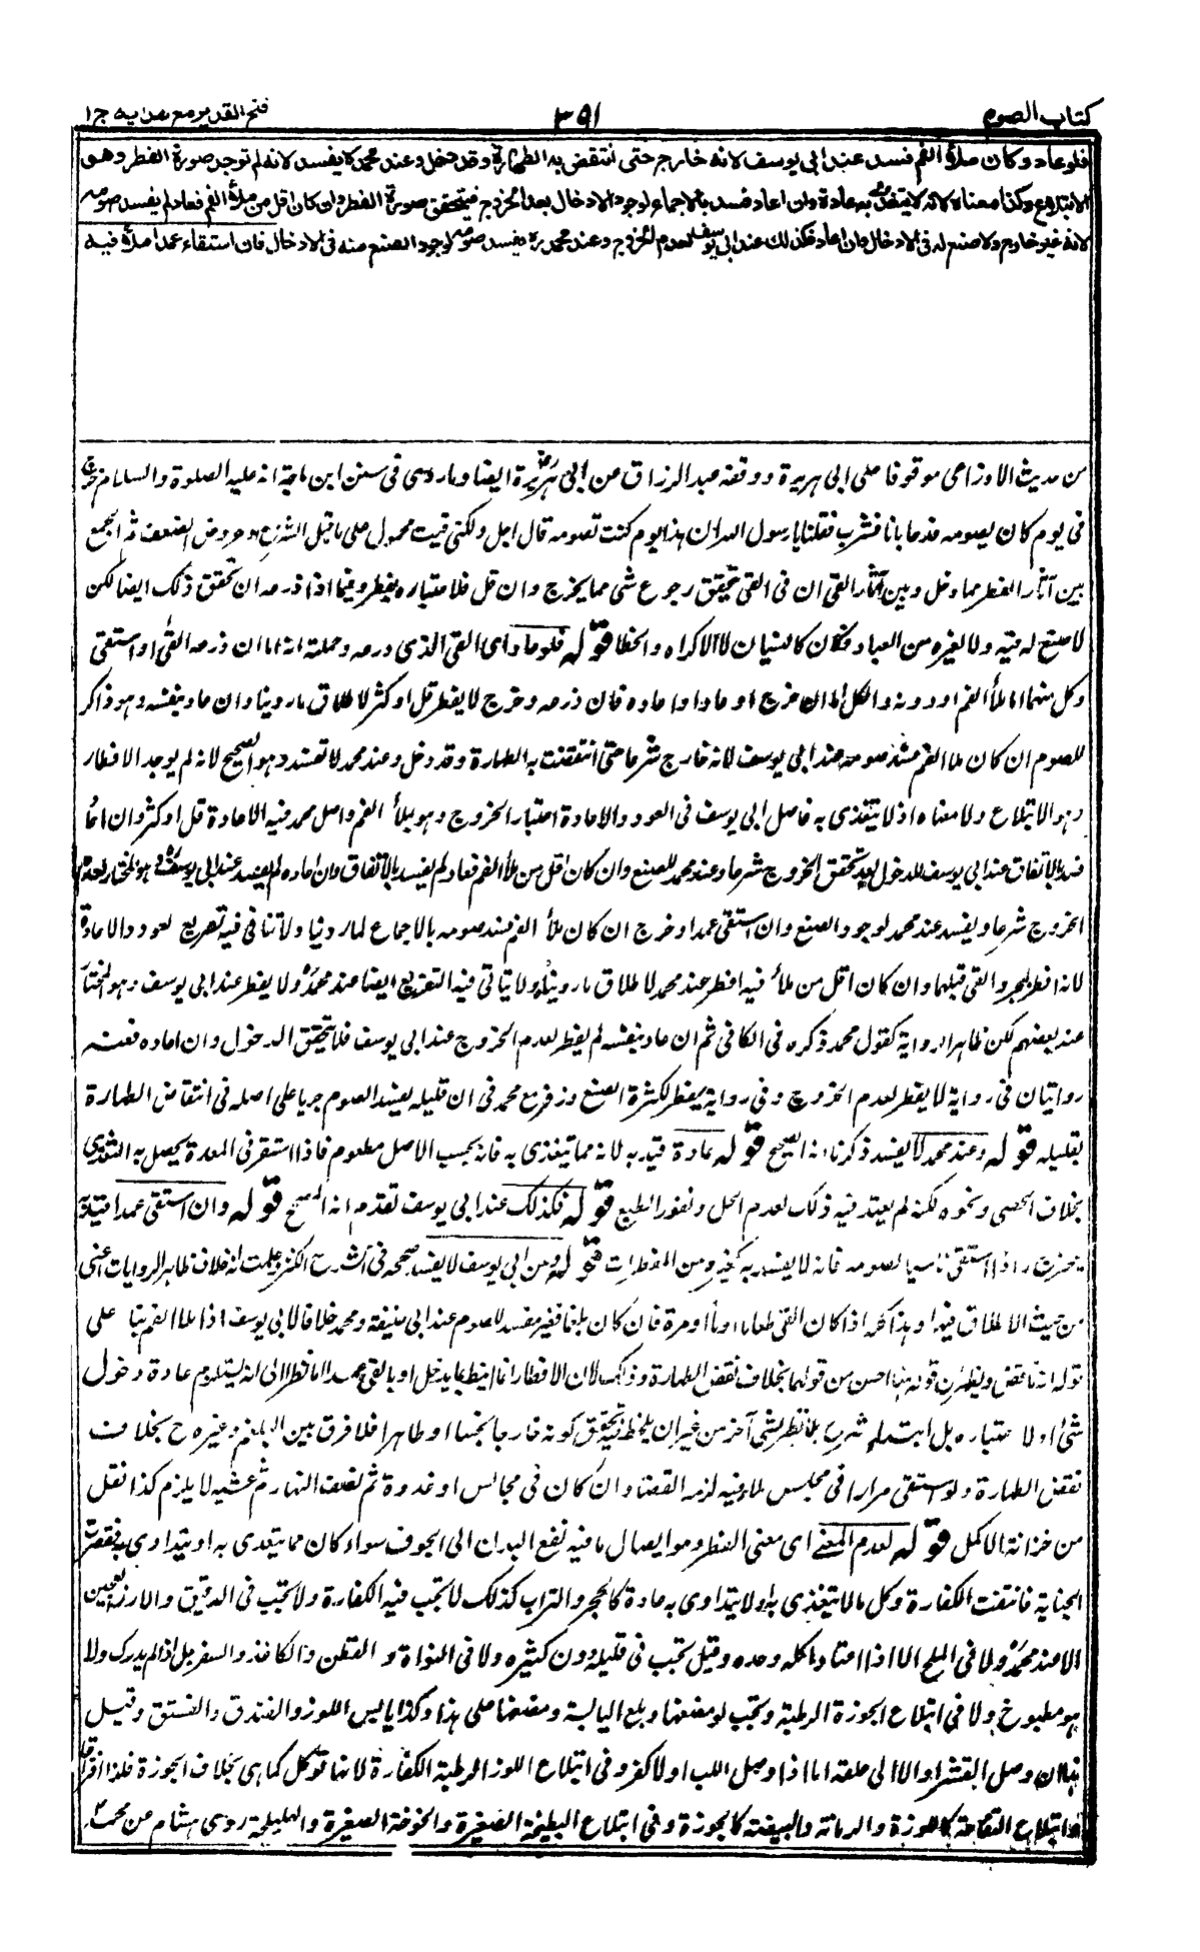 كتاب الصوم
٣٩١
فتح القدير مع هدايه ج ١
فلو عاد وكان ملأ الفم فسد عند ابى يوسف لانه خارج حتى انتقض به الطهارة وقد دخل وعند محمد لا يفسد لانه لم توجد صورة الفطر وهو
الابتلاع وكذا معناه لانه لا يتغذى به عادة وان اعاد فسد بالاجماع لوجود الادخال بعد الخروج فيتحقق صورة الفطر وان كان اقل من ملأ الفم فعاد لم يفسد صومه
لانه غير خارج ولا صنع له فى الادخال فان اعاد فكذلك عند ابى يوسف لعدم الخروج وعند محمد ره يفسد صومه لوجود الصنع منه فى الادخال فان استقاء عمدا ملأ فيه
من حديث الاوزاعى موقوفا على ابى هريرة ووقفه عبد الرزاق من ابى هريرة ايضا وما روى فى سنن ابن ماجة انه عليه الصلوة والسلام خرج
فى يوم كان يصومه فدعا باناء فشرب فقلنا يا رسول الله ان هذا يوم كنت تصومه قال اجل ولكنى قيت محمول على ما قبل الشروع او عروض الضعف ثم الجمع
بين آثار الفطر مما دخل وبين آثار القى ان فى القى يتحقق رجوع شى مما يخرج وان قل فلاعتباره يفطر وفيما اذا ذرعه ان تحقق ذلك ايضا لكن
لا صنع له فيه ولا لغيره من العباد فكان كالنسيان لا الاكراه والخطا قوله فلو عاد اى القى الذى ذرعه وجملته انه اما ان ذرعه القى او استقى
وكل منهما اما ملأ الفم او دونه والكل اما ان خرج او عاد او اعاده فان ذرعه وخرج لا يفطر قل او كثر لاطلاق ما روينا وان عاد بنفسه وهو ذاكر
للصوم ان كان ملأ الفم فسد صومه عند ابى يوسف لانه خارج شرعا حتى انتقضت به الطهارة وقد دخل وعند محمد لا تفسد وهو الصحيح لانه لم يوجد الافطار
وهو الابتلاع ولا معناه اذ لا يتغذى به فاصل ابى يوسف فى العود والاعادة اعتبار الخروج وهو بملأ الفم واصل محمد فيه الاعادة قل او كثر وان اعاد
فسد بالاتفاق عند ابى يوسف للدخول بعد تحقق الخروج شرعا وعند محمد للصنع وان كان اقل من ملأ الفم فعاد لم يفسد بالاتفاق وان اعاده لم يفسد عند ابى يوسف وهو المختار لعدم
الخروج شرعا ويفسد عند محمد لوجود الصنع وان استقى عمدا وخرج ان كان ملأ الفم فسد صومه بالاجماع لما روينا ولا تتاتى فيه تفريع العود والاعادة
لانه افطر بمجرد القى قبلهما وان كان اقل من ملأ فيه افطر عند محمد لاطلاق ما روينا ولا يتاتى فيه التفريع ايضا عند محمد ولا يفطر عند ابى يوسف وهو المختار
عند بعضهم لكن ظاهر الرواية كقول محمد ذكره فى الكافى ثم ان عاد بنفسه لم يفطر لعدم الخروج عند ابى يوسف فلا يتحقق الدخول وان اعاده فعنه
روايتان فى رواية لا يفطر لعدم الخروج وفى رواية يفطر لكثرة الصنع وزفر مع محمد فى ان قليله يفسد الصوم جريا على اصله فى انتقاض الطهارة
بقليله قوله وعند محمد لا يفسد ذكرنا انه الصحيح قوله عادة قيد به لانه مما يتغذى به فانه بحسب الاصل مطعوم فاذا استقر فى المعدة يحصل به التغذى
بخلاف الحصى ونحوه لكنه لم يعتد فيه ذلك لعدم الحل ونفور الطبع قوله فكذلك عند ابى يوسف تقدم انه الصحيح قوله وان استقى عمدا قيد به
ليخرج ما اذا استقى ناسيا لصومه فانه لا يفسد به كغيره من المفطرات قوله وعن ابى يوسف لا يفسد صححه فى شرح الكنز وعلمت انه خلاف ظاهر الروايات اعنى
من حيث الاطلاق فيها وهذا كله اذا كان القى طعاما او ماء او مرة فان كان بلغما فغير مفسد للصوم عند ابى حنيفة ومحمد خلافا لابى يوسف اذا ملأ الفم بناء على
قوله انه ناقض ويظهر ان قوله هنا احسن من قولهما بخلاف نقض الطهارة وذلك لان الافطار انما نيط بما يدخل او بالقى عمدا اما نظرا الى انه يستلزم عادة دخول
شئ او لا باعتباره بل ابتداء شرع بلا نظر الى شئ آخر من غير ان يلحظ تحقق كونه خارجا نجسا او طاهرا فلا فرق بين البلغم وغيره ح بخلاف
نقض الطهارة ولو استقى مرارا فى مجلس ملأ فيه لزمه القضاء وان كان فى مجالس او غدوة ثم نصف النهار ثم عشية لا يلزم كذا نقل
من خزانة الاكمل قوله لعدم المعنى اى معنى الفطر وهو ايصال ما فيه نفع البدن الى الجوف سواء كان مما يتغذى به او يتداوى به فقصرت
الجناية فانتفت الكفارة وكل ما لا يتغذى به ولا يتداوى به عادة كالحجر والتراب كذلك لا تجب فيه الكفارة ولا تجب فى الدقيق والارز والعجين
الا عند محمد ولا فى الملح الا اذا اعتاد اكله وحده وقيل تجب فى قليله دون كثيره ولا فى النواة والقطن والكاغذ والسفرجل اذا لم يدرك ولا
هو مطبوخ ولا فى ابتلاع الجوزة الرطبة وتجب لو مضغها وبلع اليابسة ومضغها على هذا وكذا يابس اللوز والفندق والفستق وقيل
هذا ان وصل القشر اولا الى حلقه اما اذا وصل اللب اولا كفر وفى ابتلاع اللوزة الرطبة الكفارة لانها توكل كما هى بخلاف الجوزة فلذا افترقا
وابتلاع التفاحة كاللوزة والرمانة والبيضة كالجوزة وفى ابتلاع البطيخة الصغيرة والخوخة الصغيرة والهليلجة روى هشام عن محمد